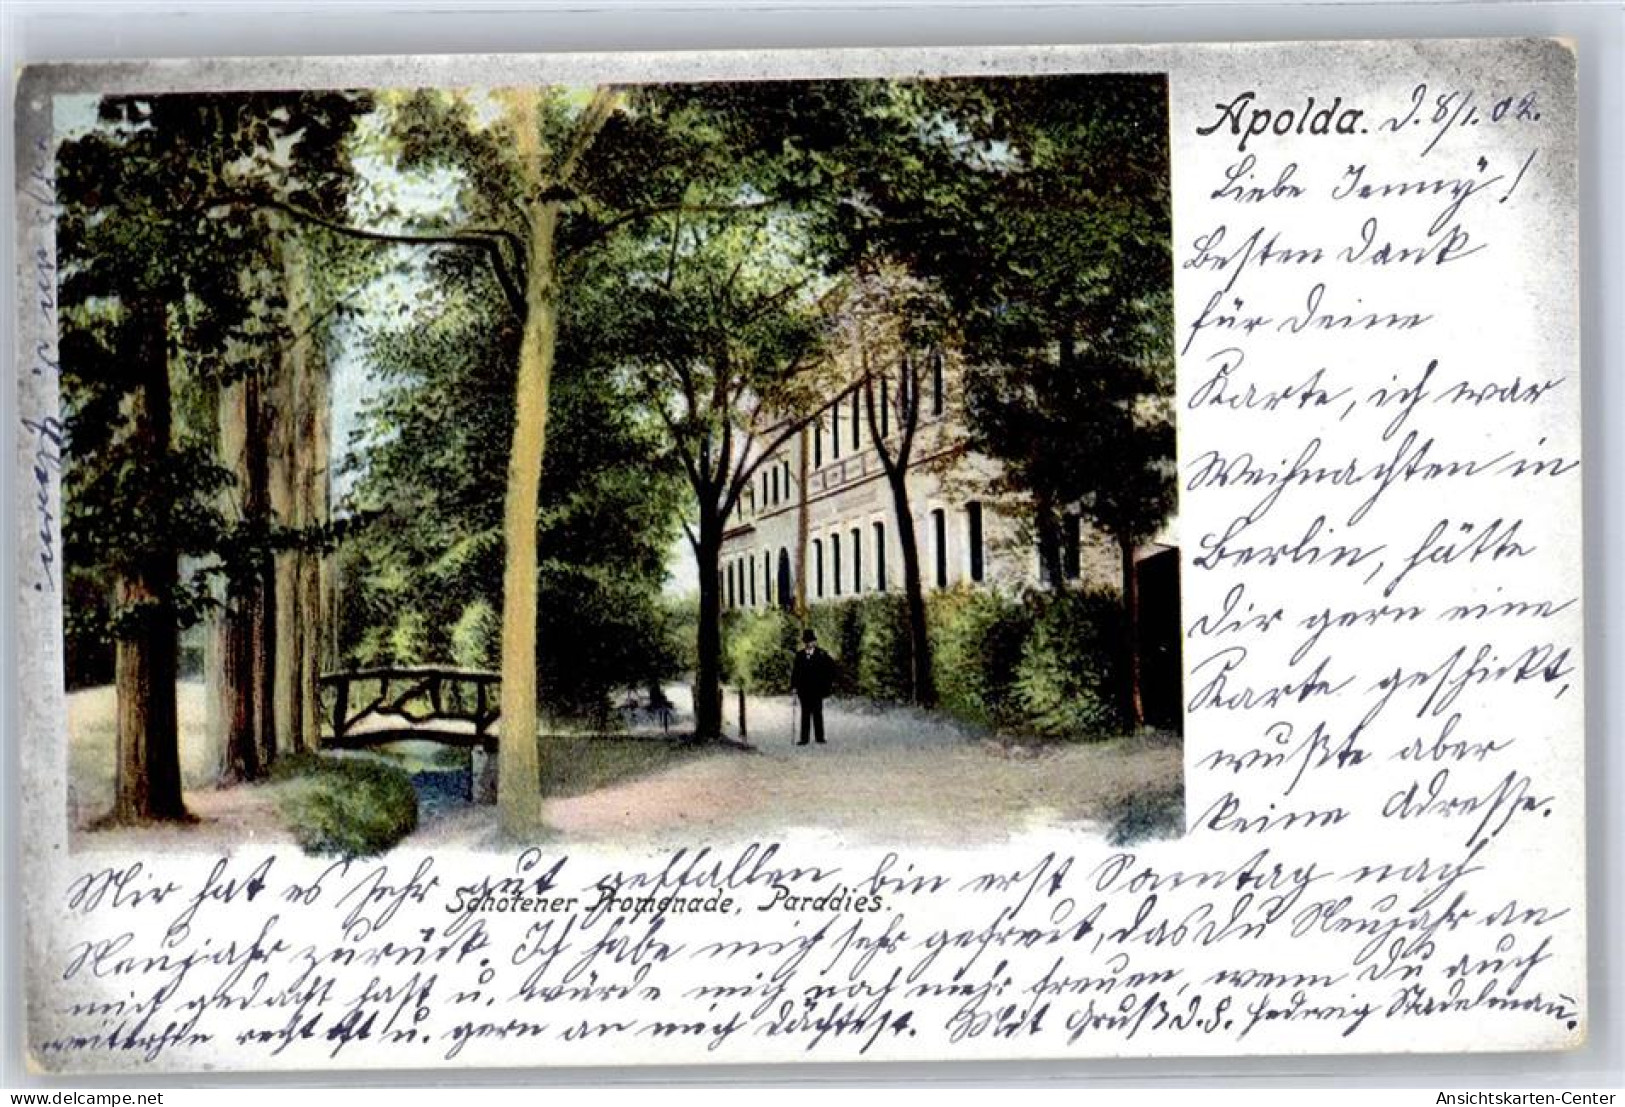 Apolda. d. 8/1. 02.
Liebe Jenny!
Besten Dank
für Deine
Karte, ich war
Weihnachten in
Berlin, hätte
Dir gern eine
Karte geschickt,
wußte aber
keine Adresse.
Mir hat es sehr gut gefallen, bin erst Sonntag nach
Schötener Promenade, Paradies.
Neujahr zurück. Ich habe mich sehr gefreut, das Du Neujahr an
mich gedacht hast u. würde mich noch mehr freuen, wenn Du auch
weiterhin recht oft u. gern an mich dächtest. Mit Gruß d. F. Hedwig Stadelmann.
www.ansichtskarten-center.com
AnsichtsKarten-Center